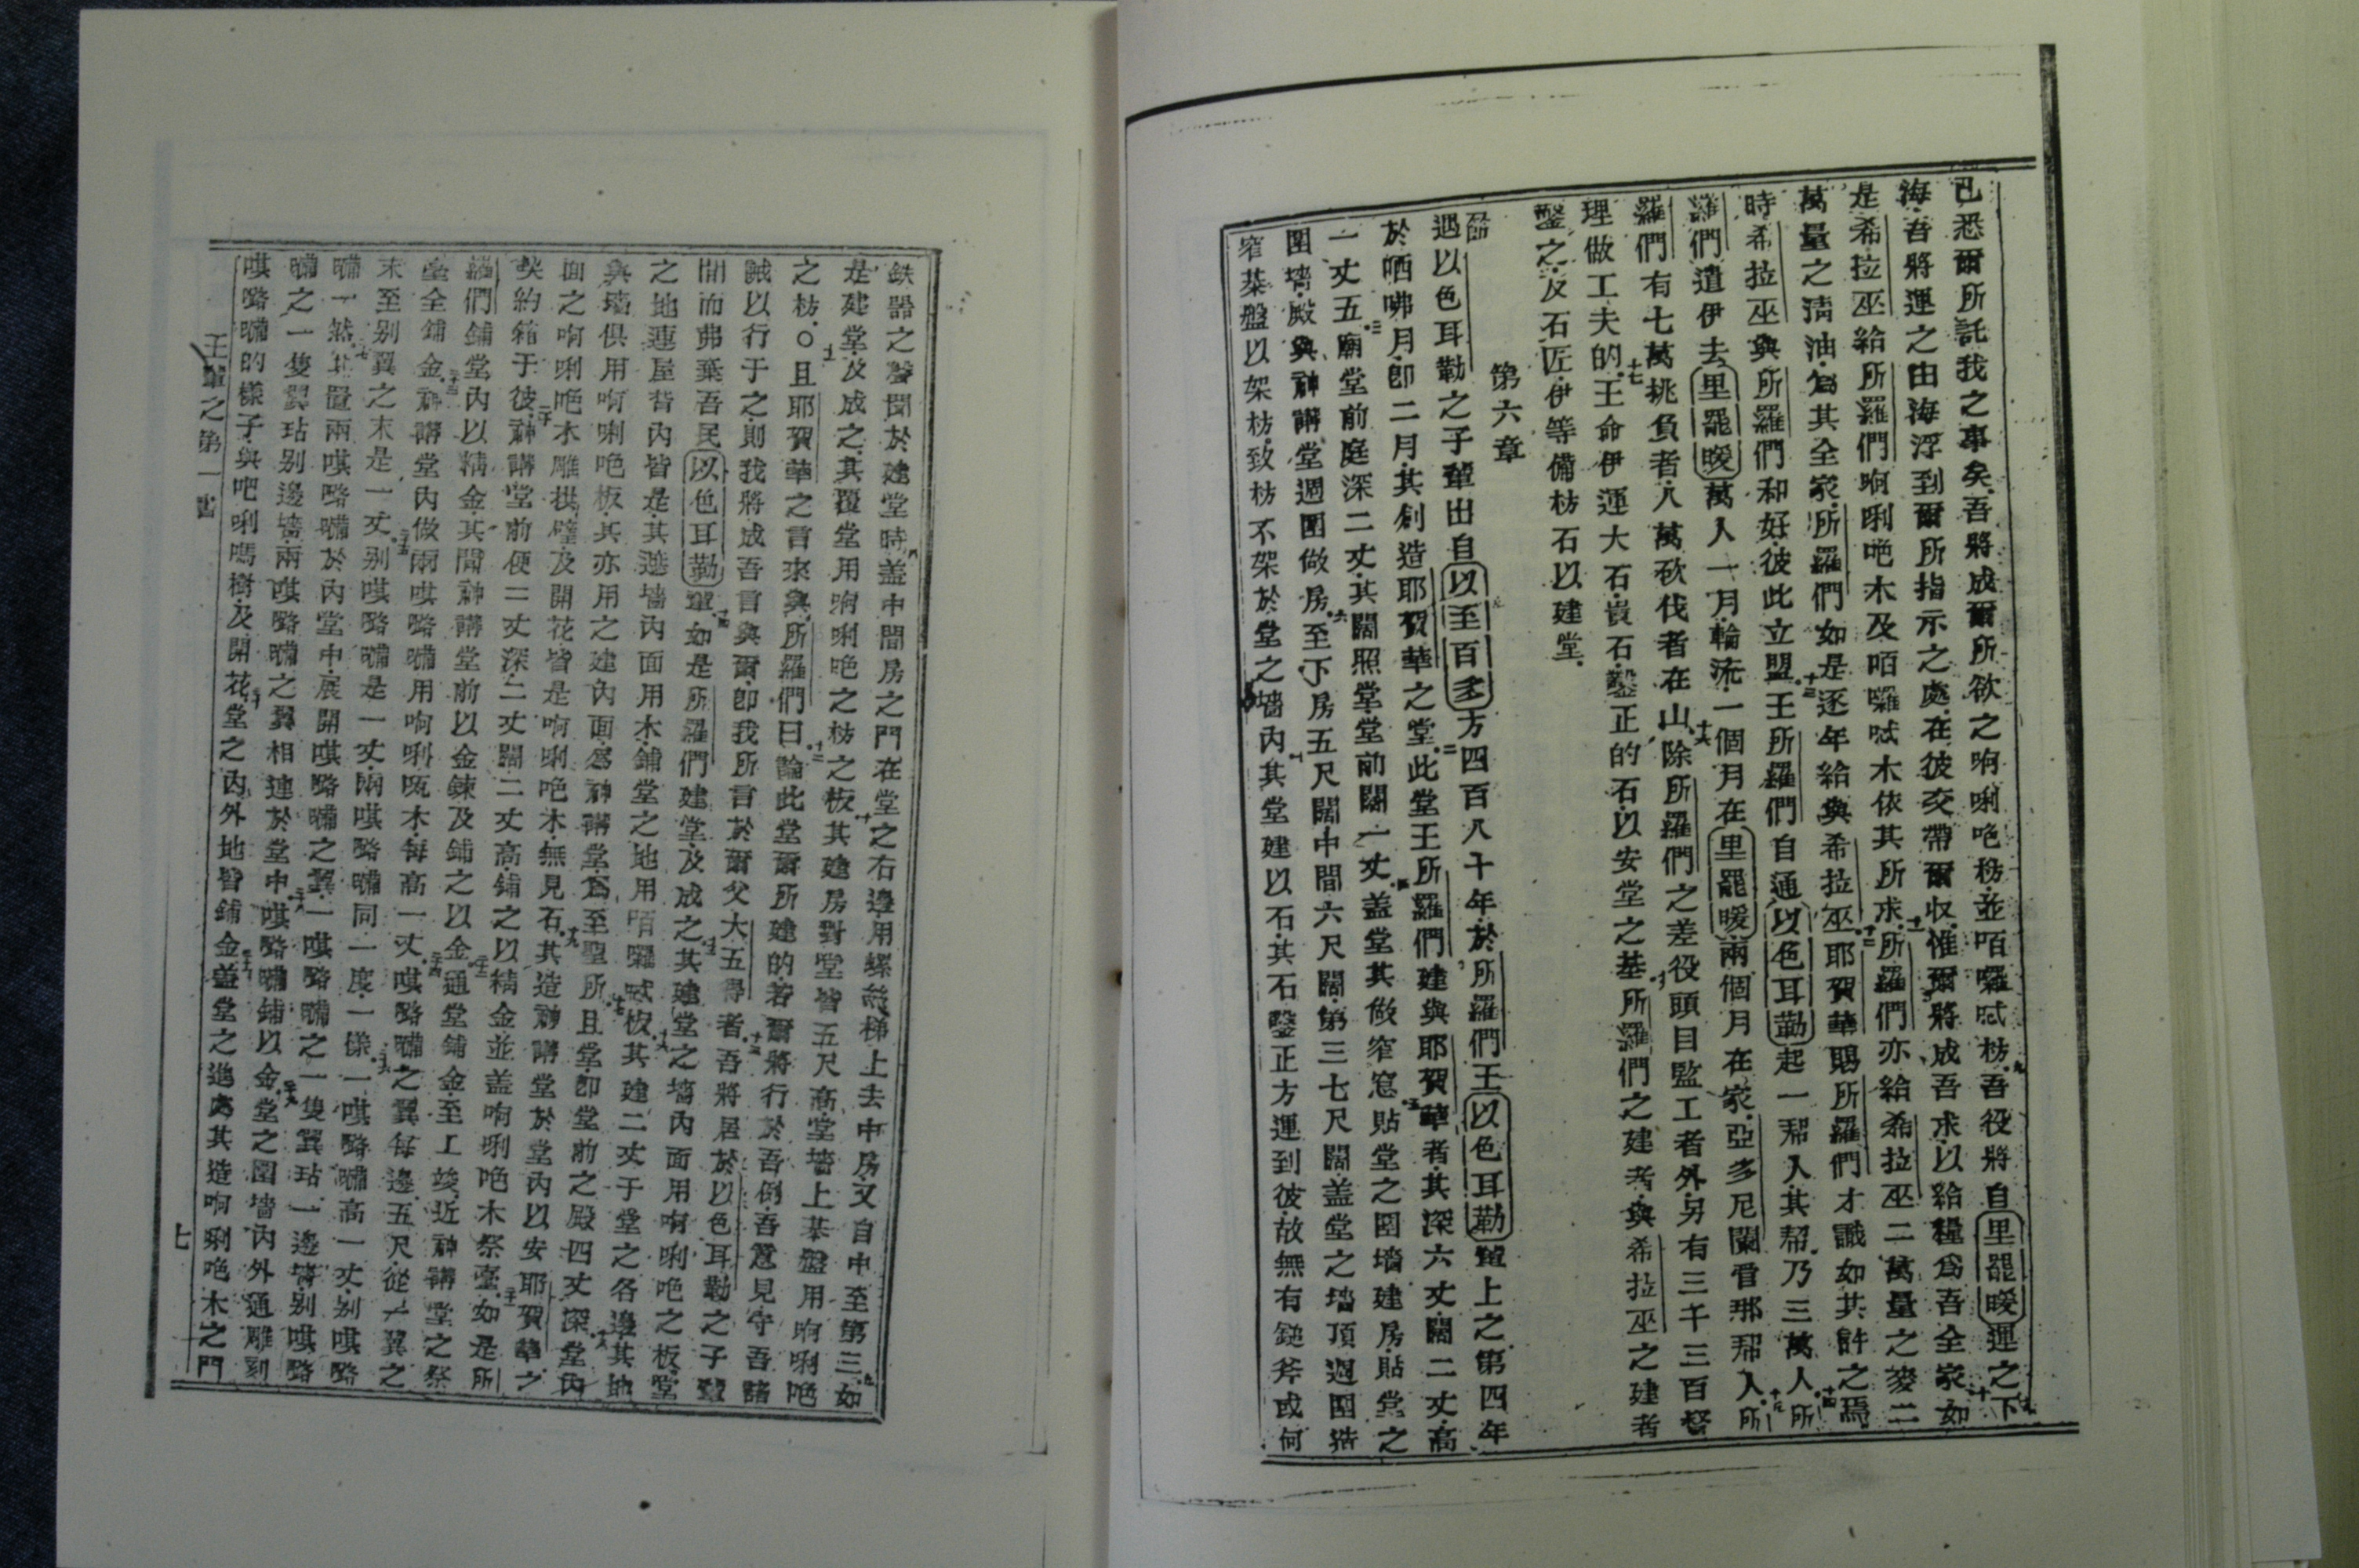 已悉爾所託我之事矣吾將成爾所欲之㕸唎吧枋並㕷囉𠵽枋九吾役將自里罷暖運之下
海吾將運之由海浮到爾所指示之處在彼交帶爾收惟爾將成吾求以給糧爲吾全家十如
是希拉巫給所羅們㕸唎吧木及㕷囉𠵽木依其所求十一所羅們亦給希拉巫二萬量之麥二
萬量之淸油爲其全家所羅們如是逐年給與希拉巫十二耶賀華賜所羅們才識如其許之焉
時希拉巫與所羅們和好彼此立盟十三王所羅們自通以色耳勒起一帮人其帮乃三萬人十四所
羅們遣伊去里罷暖萬人一月輪流一個月在里罷暖兩個月在家亞多尼闌看那帮人十五所
羅們有七萬挑負者八萬砍伐者在山十六除所羅們之差役頭目監工者外另有三千三百督
理做工夫的十七王命伊運大石貴石鑿正的石以安堂之基十八所羅們之建者與希拉巫之建者
鑿之及石匠伊等備枋石以建堂
第六章
節
遇以色耳勒之子輩出自以至百多方四百八十年於所羅們王以色耳勒輩上之第四年
於哂咈月卽二月其創造耶賀華之堂二此堂王所羅們建與耶賀華者其深六丈闊二丈高
一丈五三廟堂前庭深二丈其闊照堂堂前闊一丈四盖堂其做窄窓五貼堂之圍墻建房貼堂之
圍墻殿與神講堂週圍做房六至下房五尺闊中間六尺闊第三七尺闊盖堂之墻頂週圍造
窄基盤以架枋致枋不架於堂之墻內七其堂建以石其石鑿正方運到彼故無有鎚斧或何
鉄器之聲聞於建堂時八盖中間房之門在堂之右邊用螺絲梯上去中房又自中至第三九如
是建堂及成之其覆堂用㕸唎吧之枋之板十其建房對堂皆五尺高堂墻上基盤用㕸唎吧
之枋○十一且耶賀華之言來與所羅們曰十二論此堂爾所建的若爾將行於吾例吾意見守吾諸
誡以行于之則我將成吾言與爾卽我所言於爾父大五得者十三吾將居於以色耳勒之子輩
間而弗棄吾民以色耳勒輩十四如是所羅們建堂及成之十五其建堂之墻內面用㕸唎吧之板堂
之地連屋背內皆是其遮墻內面用木鋪堂之地用㕷囉𠵽板十六其建二丈于堂之各邊其地
與墻俱用㕸唎吧板其亦用之建內面爲神講堂爲至聖所十七且堂卽堂前之殿四丈深十八堂內
面之㕸唎吧木雕拱璧及開花皆是㕸唎吧木無見石十九其造神講堂於堂內以安耶賀華之
契約箱于彼二十神講堂前便二丈深二丈闊二丈高鋪之以精金並盖㕸唎吧木祭臺二十一如是所
羅們鋪堂內以精金其間神講堂前以金鍊及鋪之以金二十二通堂鋪金至工竣近神講堂之祭
臺全鋪金二十三神講堂內做兩㖽㗉㘔用㕸唎㕸木每高一丈二十四㖽㗉㘔之翼每邊五尺從一翼之
末至别翼之末是一丈二十五别㖽㗉㘔是一丈兩㖽㗉㘔同一度一樣二十六一㖽㗉㘔高一丈别㖽㗉
㘔一然二十七其置兩㖽㗉㘔於內堂中展開㖽㗉㘔之翼一㖽㗉㘔之一隻翼玷一邊墻别㖽㗉
㘔之一隻翼玷别邊墻兩㖽㗉㘔之翼相連於堂中二十八㖽㗉㘔鋪以金二十九堂之圍墻內外通雕刻
㖽㗉㘔的樣子與吧唎嗎樹及開花三十堂之內外地皆鋪金三十一盖堂之進處其造㕸唎吧木之門
王輩之第一書
七